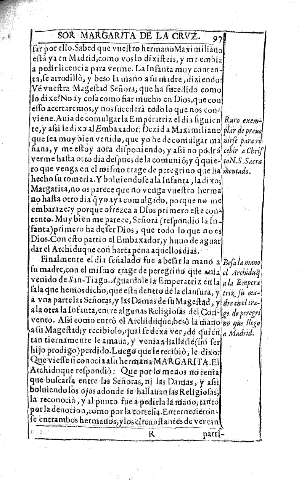 SOR MARGARITA DE LA CRVZ. 97
sar por ello. Sabed que vuestro hermano Maximiliano
está ya en Madrid, como vos lo dixisteis, y me embia
a pedir licencia para verme. La Infanta muy conten-
ta, se arrodilló, y beso la mano a su madre, diziendo:
Vé vuestra Magestad Señora, que ha sucedido como
lo dixe? No ay cosa como fiar mucho en Dios, que con
esso acertaremos, y nos sucederá todo lo que nos con-
viene. Avia de comulgar la Emperatriz el dia siguien
te, y assi le dixo al Embaxador: Dezid a Maximiliano
que sea muy bien venido, que yo he de comulgar ma
ñana, y me estoy aora disponiendo, y assi no podrá
verme hasta otro dia despues de la comunió, y q̃ quie-
ro que venga en el mismo trage de peregrino que ha
hecho su romeria. Y bolviendose a la Infanta, la dixo:
Margarita, no os parece que no venga vuestro herma
no hasta otro dia q̃ yo aya comulgado, porque no me
embarace y porque ofrezca a Dios primero este con-
tento. Muy bien me parece, Señora (respondió la In-
fanta) primero ha de ser Dios, que todo lo que no es
Dios. Con esto partio el Embaxador, y huvo de aguar
dar el Archiduque con harta pena aquellos dias.
Finalmente el dia señalado fue a besar la mano a
su madre, con el mismo trage de peregrino que avia
venido de San-Tiago. Aguardavale la Emperatriz en la
sala que hemos dicho, que está dentro de la clausura, y
a vna parte las Señoras, y las Damas de su Magestad, y
a la otra la Infanta, entre algunas Religiosas del Con-
vento. Assi como entró el Archiduque, besó la mano
a su Magestad, y recibiolo, qual se dexa ver, de quien
tan tiernamente le amava, y venia a hallarle (sin ser
hijo prodigo) perdido. Luego que le recibio, le dixo:
Que viesse si conocia a su hermana MARGARITA. El
Archiduque respondió: Que por lo menos no tenia
que buscarla entre las Señoras, ni las Damas, y assi
bolviendo los ojos adonde se hallavan las Religiosas,
la reconoció, y al punto fue a pedirla la mano, tanto
por la devocion, como por la cortesia. Enternecieron-
se entrambos hermanos, y los circunstantes de ver tan
R parti-
Raro exem-
plar de preve
nirse para re
cebir a Chris
to N. S. Sacra
mentado.
Besa la mano
el Archiduq̃
a la Empera
triz, su ma-
dre en el tra-
ge de peregri
no que llegó
a Madrid.